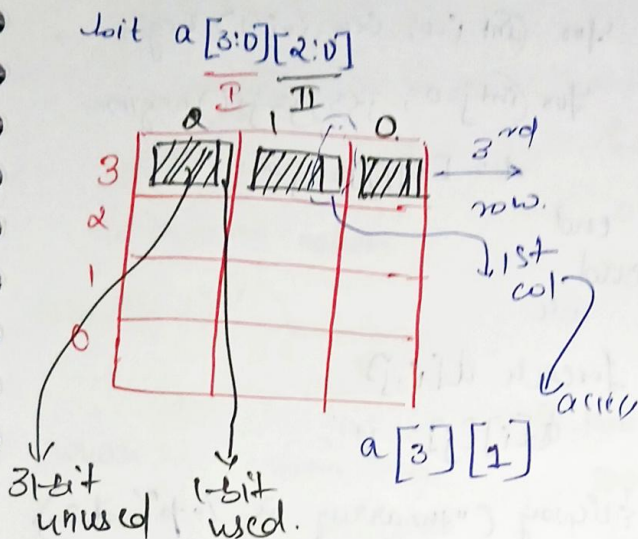 bit a[3:0][2:0]
I II
2 1 0
3
3rd
row.
2
1st
col
1
0
a[3][1]
31-bit
unused
1-bit
used.